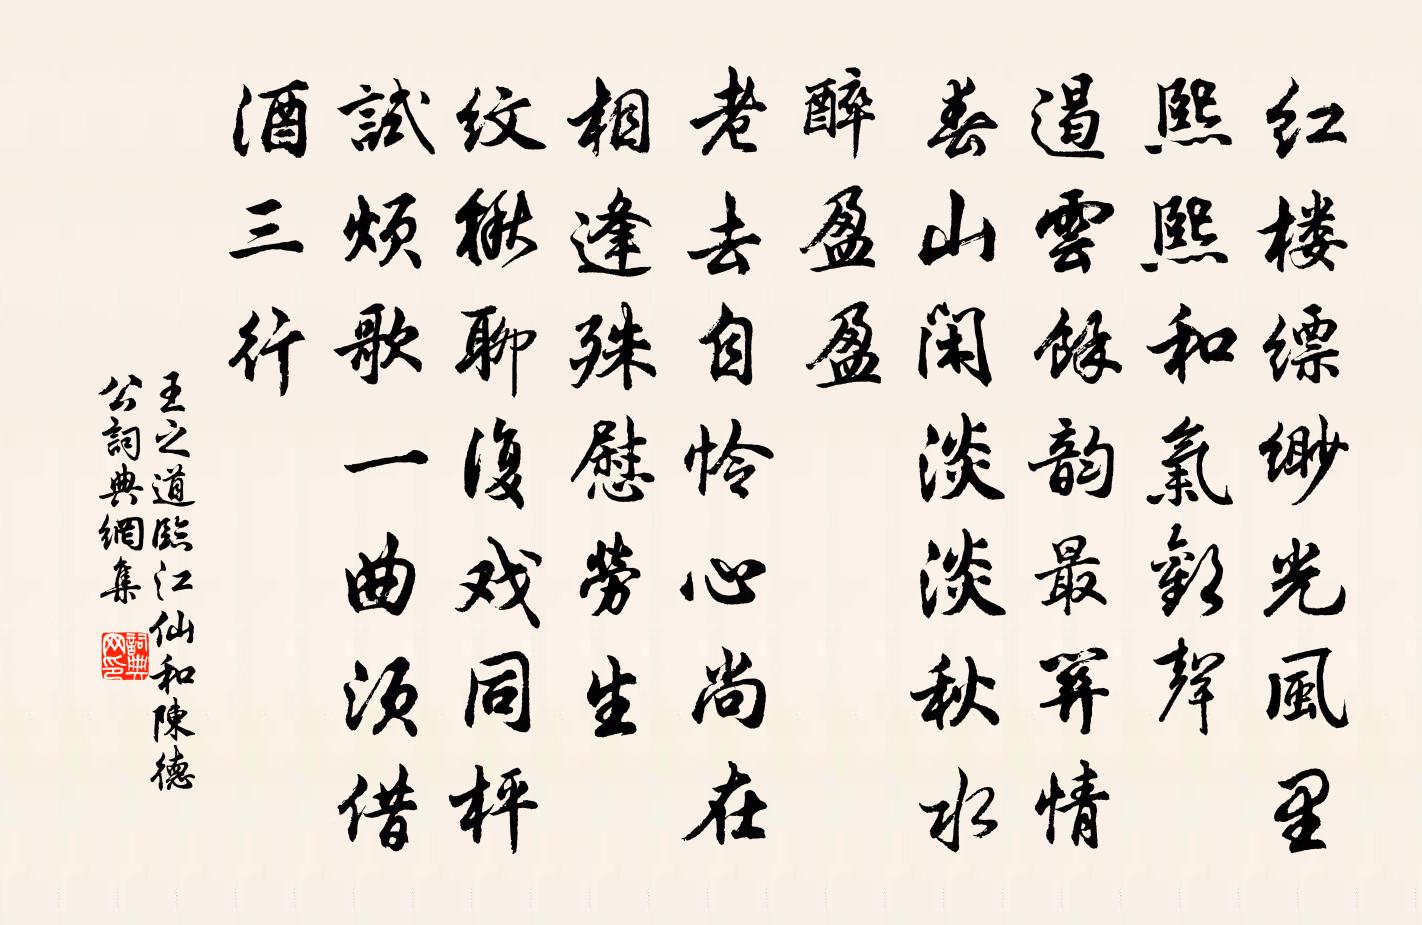 红楼缥缈光风里
熙熙和氣歡聲
遏雲餘韵最關情
春山闲淡淡秋水
醉盈盈
老去自怜心尚在
相逢殊慰勞生
纹楸聊復戏同枰
試烦歌一曲须借
酒三行
王之道臨江仙和陳德
公詞典網集
詞典网印